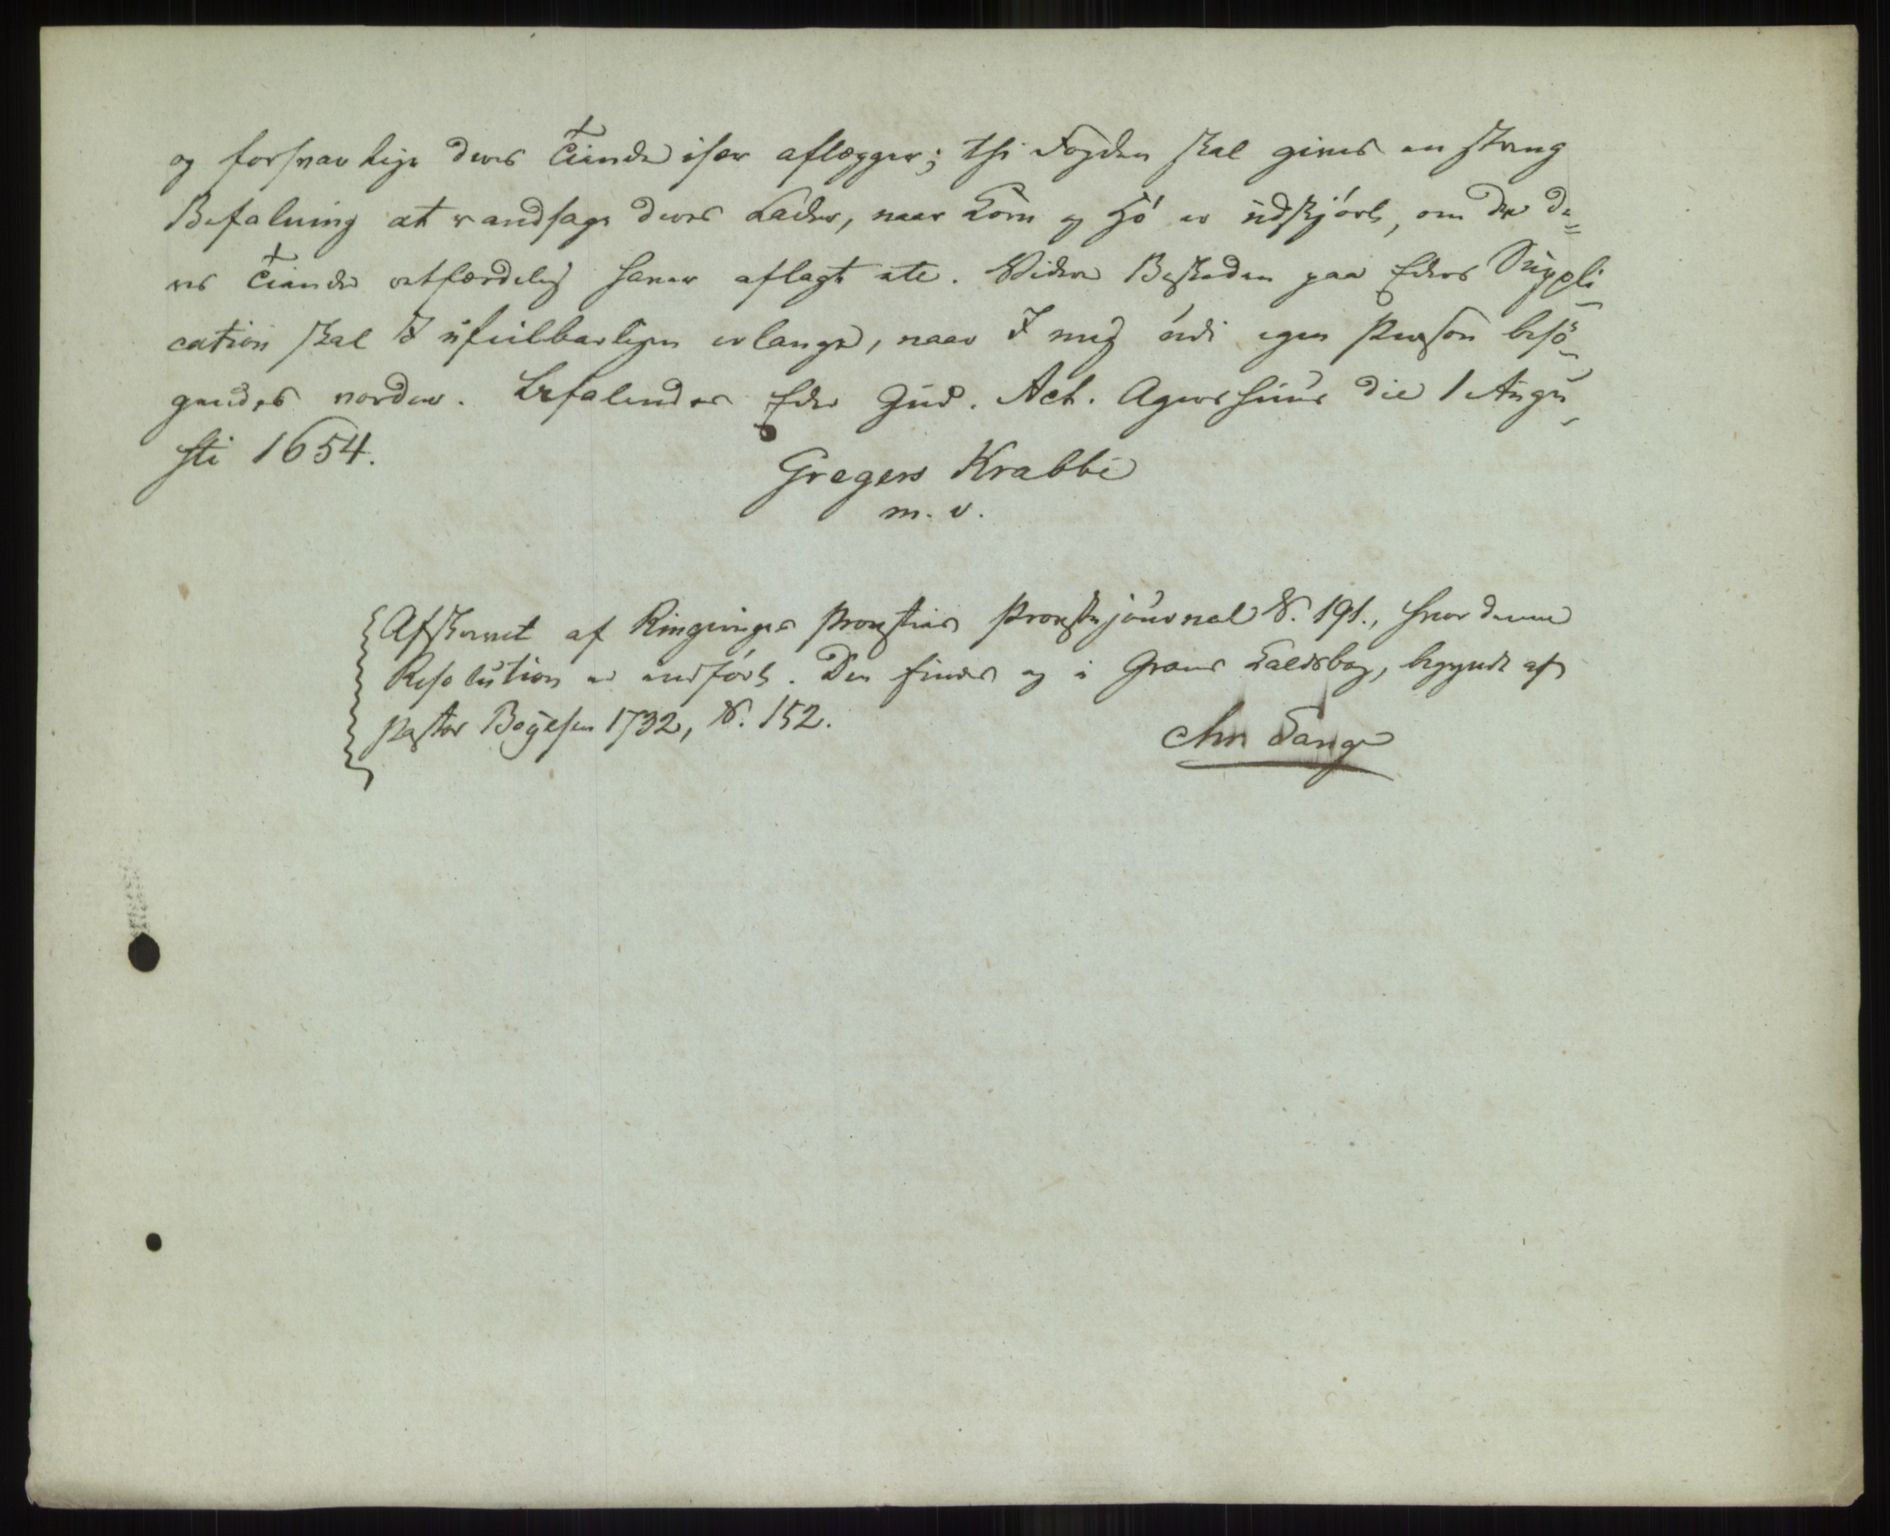 og forsvarlige deres Tiende især aflægger; thi Fogden skal gives en streng
Befalning at randsage deres Lader, naar Korn og Hö er indkjört, om de de=
res Tiende retfærdelig haver aflagt etc. Videre Beskeden paa Eders Suppli
cation skal I ufeilbarligen erlange, naar I mig udi egen Person besö-
gendes vorder. Befalendes Eder Gud. Act. Agershuus die 1 Augu-
sti 1654.
Gregers Krabbe
m. v.
Afskrevet af Ringeriges Provsties Provstejournal S. 191., hvor denne
Resolution er indfört. Den findes og i Grans Kaldsbog, begyndt af
Pastor Boyesen 1732, S. 152.
Chr Lange